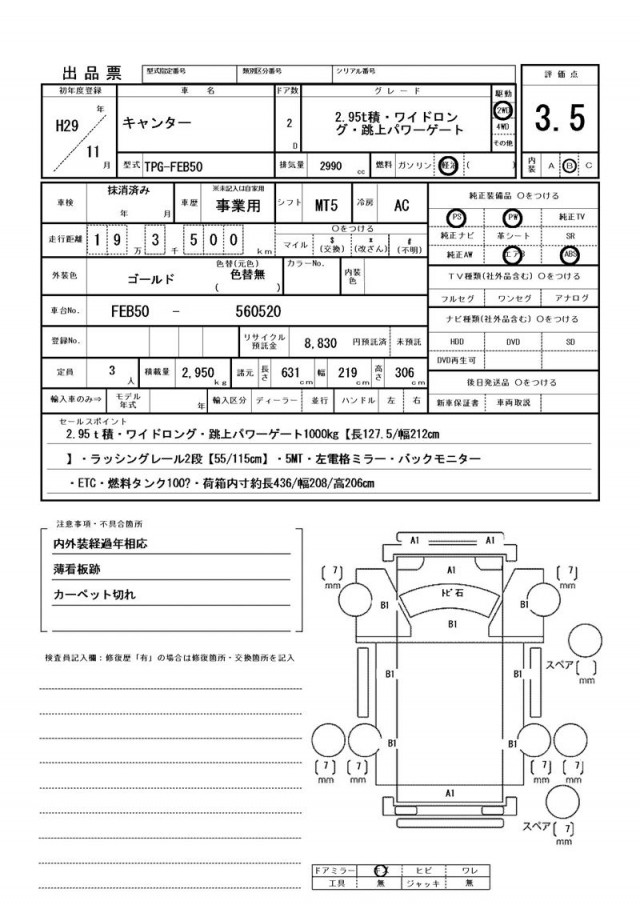 出品票 型式指定番号 類別区分番号 シリアル番号 評価点
初年度登録 車名 ドア数 グレード 駆動
H29 年 11 月
キャンター
2 D
2.95t積・ワイドロン
グ・跳上パワーゲート
2WD
4WD
その他
3.5
型式 TPG-FEB50 排気量 2990 cc 燃料 ガソリン 軽油 ( ) 内装 A B C
車検 抹消済み 年 月 車歴 ※未記入は自家用 事業用 シフト MT5 冷房 AC
走行距離 19万3千500km
〇をつける
マイル $(交換) *(改ざん) #(不明)
外装色 ゴールド 色替(元色) 色替無 ( ) カラーNo. 内装色
車台No. FEB50 - 560520
登録No. リサイクル預託金 8,830 円預託済 未預託
定員 3 人 積載量 2,950 kg 諸元 長さ 631 cm 幅 219 cm 高さ 306 cm
輸入車のみ⇒ モデル年式 年 輸入区分 ディーラー 並行 ハンドル 左 右
純正装備品 〇をつける
PS PW 純正TV
純正ナビ 革シート SR
純正AW エアB ABS
TV種類(社外品含む) 〇をつける
フルセグ ワンセグ アナログ
ナビ種類(社外品含む) 〇をつける
HDD DVD SD
DVD再生可
後日発送品 〇をつける
新車保証書 車両取説
セールスポイント
2.95t積・ワイドロング・跳上パワーゲート1000kg【長127.5/幅212cm
】・ラッシングレール2段【55/115cm】・5MT・左電格ミラー・バックモニター
・ETC・燃料タンク100?・荷箱内寸約長436/幅208/高206cm
注意事項・不具合箇所
内外装経過年相応
薄看板跡
カーペット切れ
検査員記入欄:修復歴「有」の場合は修復箇所・交換箇所を記入
A1 A1
A1
[7]mm [7]mm
トビ石
B1 B1
B1
スペア[ ]mm
B1 B1
B1 B1
[7]mm [7]mm [7]mm [7]mm
A1
スペア[7]mm
ドアミラー キズ ヒビ ワレ
工具 無 ジャッキ 無